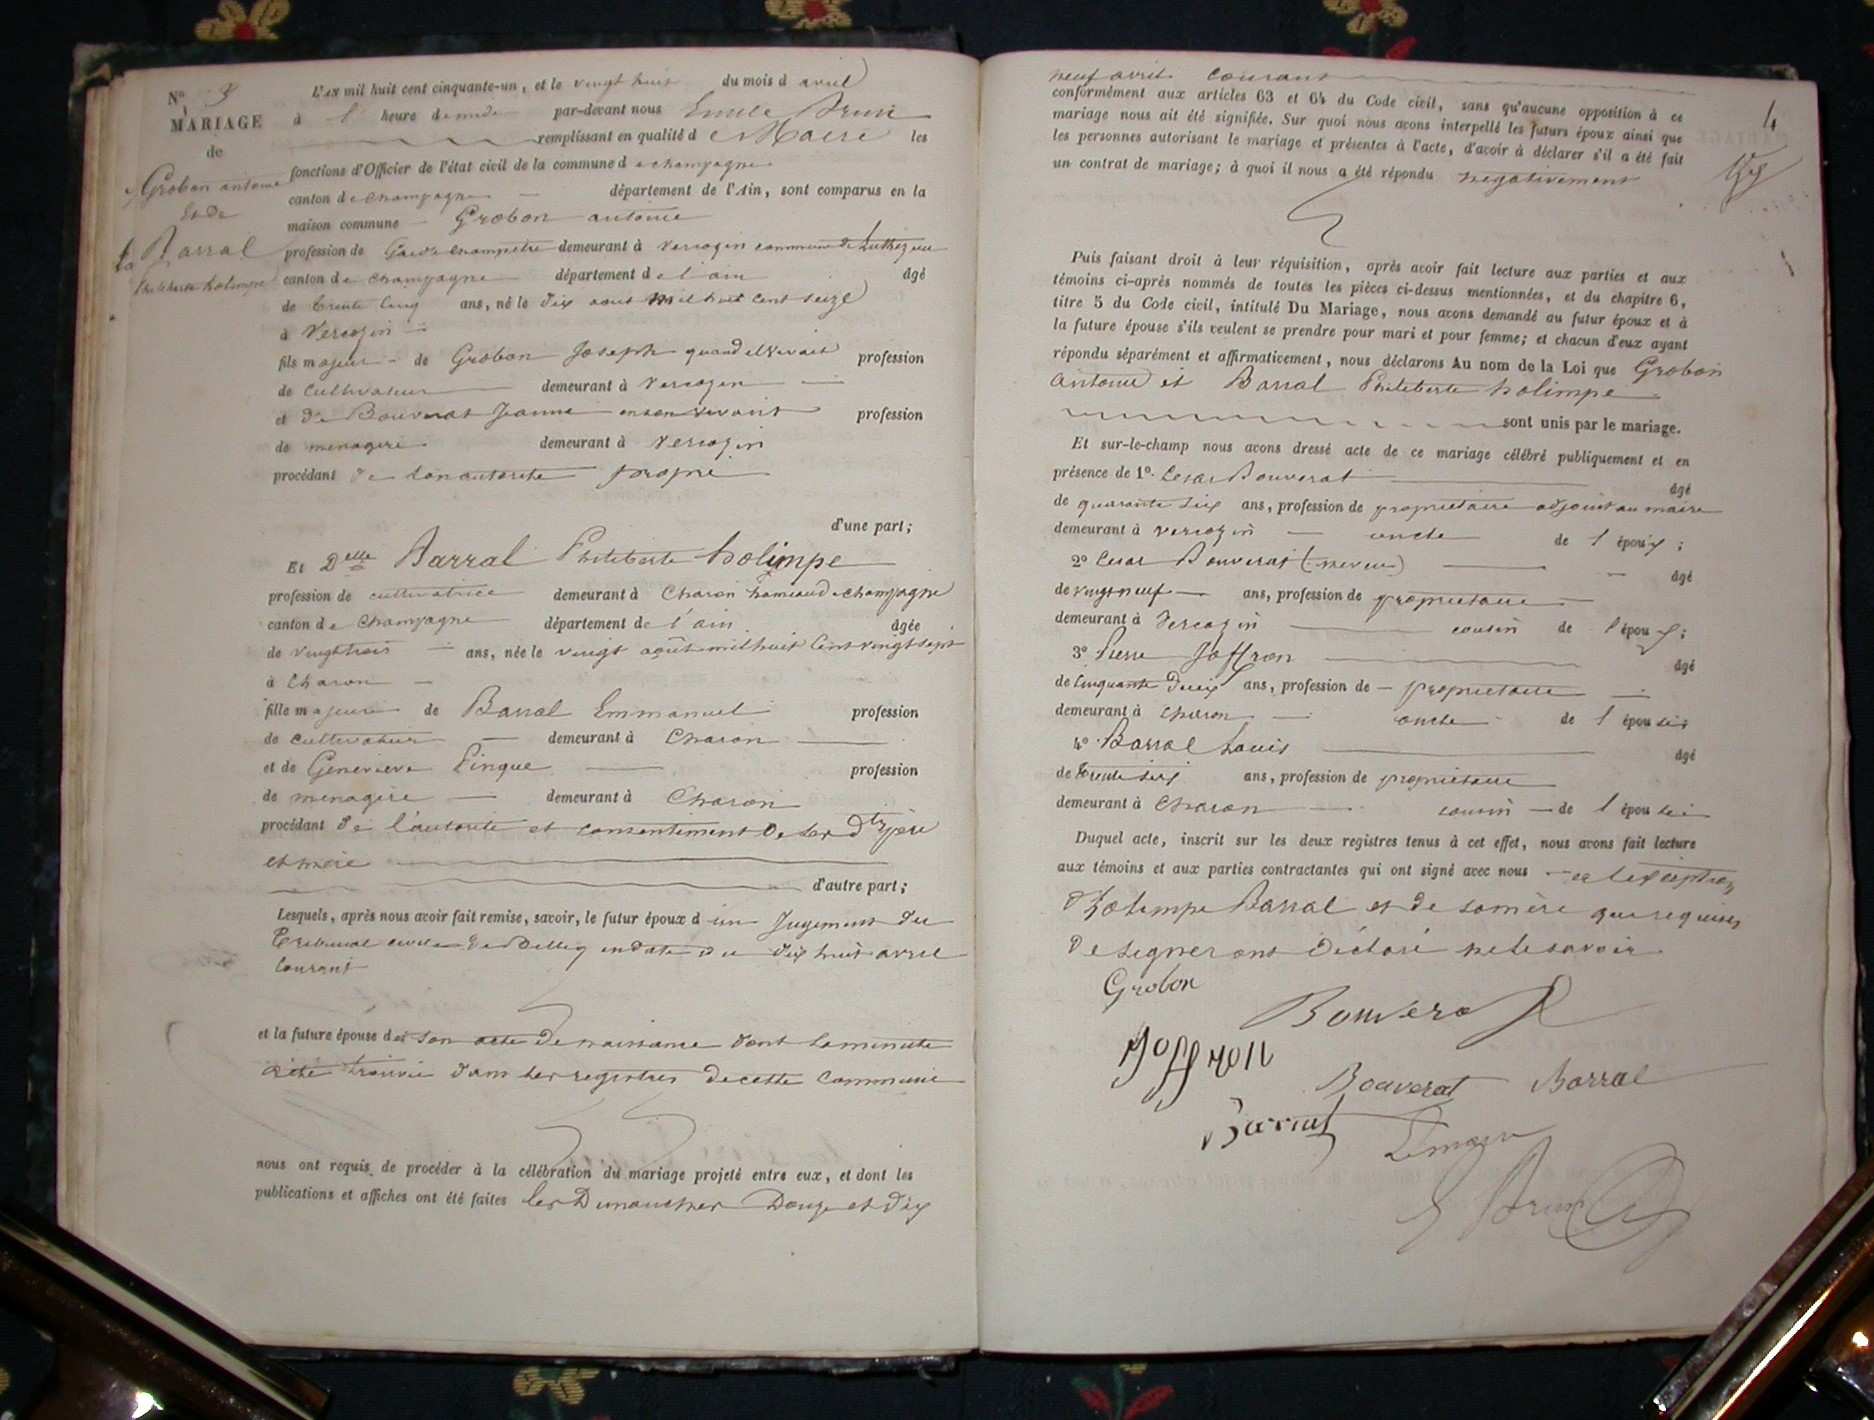 N.° 3
MARIAGE
de
Grobon antoine
Et de
Barral
Philiberte holimpe
L'AN mil huit cent cinquante-un, et le vingt huit du mois d avril
à l heure de midi par-devant nous Emile Brun
remplissant en qualité d e Maire les
fonctions d'Officier de l'état civil de la commune d e champagne
canton d e champagne département de l'Ain, sont comparus en la
maison commune Grobon antoine
profession de Garde champetre demeurant à Vercozin commune de Luthezieu
canton d e champagne département d e l'ain âgé
de trente cinq ans, né le dix aout mil huit cent seize
à Vercozin
fils majeur de Grobon Joseph quand il vivait profession
de cultivateur demeurant à Vercozin
et de Bouverat Jeanne en son vivant profession
de menagere demeurant à Vercozin
procédant de son autorité propre
d'une part;
Et Delle Barral Philiberte holimpe
profession de cultivatrice demeurant à Charon hameau de champagne
canton d e Champagne département d e l'ain âgée
de vingt trois ans, née le vingt août mil huit cent vingt sept
à Charon
fille majeure de Barral Emmanuel profession
de cultivateur demeurant à Charon
et de Genevieve Pingue profession
de menagere demeurant à Charon
procédant de l'autorité et consentement de ses dts père
et mère
d'autre part;
Lesquels, après nous avoir fait remise, savoir, le futur époux d un Jugement du
Tribunal civil de Belley en date du dix huit avril
courant
et la future épouse de son acte de naissance dont la minute
a été trouvée dans les registres de cette commune
nous ont requis de procéder à la célébration du mariage projeté entre eux, et dont les
publications et affiches ont été faites les Dimanches Douze et dix
neuf avril courant
conformément aux articles 63 et 64 du Code civil, sans qu'aucune opposition à ce
mariage nous ait été signifiée. Sur quoi nous avons interpellé les futurs époux ainsi que
les personnes autorisant le mariage et présentes à l'acte, d'avoir à déclarer s'il a été fait
un contrat de mariage; à quoi il nous a été répondu negativement
4
Puis faisant droit à leur réquisition, après avoir fait lecture aux parties et aux
témoins ci-après nommés de toutes les pièces ci-dessus mentionnées, et du chapitre 6,
titre 5 du Code civil, intitulé Du Mariage, nous avons demandé au futur époux et à
la future épouse s'ils veulent se prendre pour mari et pour femme; et chacun d'eux ayant
répondu séparément et affirmativement, nous déclarons Au nom de la Loi que Grobon
Antoine et Barral Philiberte holimpe
sont unis par le mariage.
Et sur-le-champ nous avons dressé acte de ce mariage célébré publiquement et en
présence de 1°. Cesar Bouverat âgé
de quarante six ans, profession de proprietaire adjoint au maire
demeurant à Vercozin oncle de l époux;
2° Cesar Bouverat (neveu) âgé
de vingt neuf ans, profession de proprietaire
demeurant à Vercozin cousin de l époux;
3° Pierre Joffron âgé
de cinquante deux ans, profession de proprietaire
demeurant à Charon oncle de l épouse
4° Barral Louis âgé
de trente six ans, profession de proprietaire
demeurant à Charon cousin de l épouse
Duquel acte, inscrit sur les deux registres tenus à cet effet, nous avons fait lecture
aux témoins et aux parties contractantes qui ont signé avec nous a l'exception
d'holimpe Barral et de sa mère que requises
de signer ont déclaré ne le savoir
Grobon
Bouverat
Joffron
Bouverat Barral
Barral
E Brun